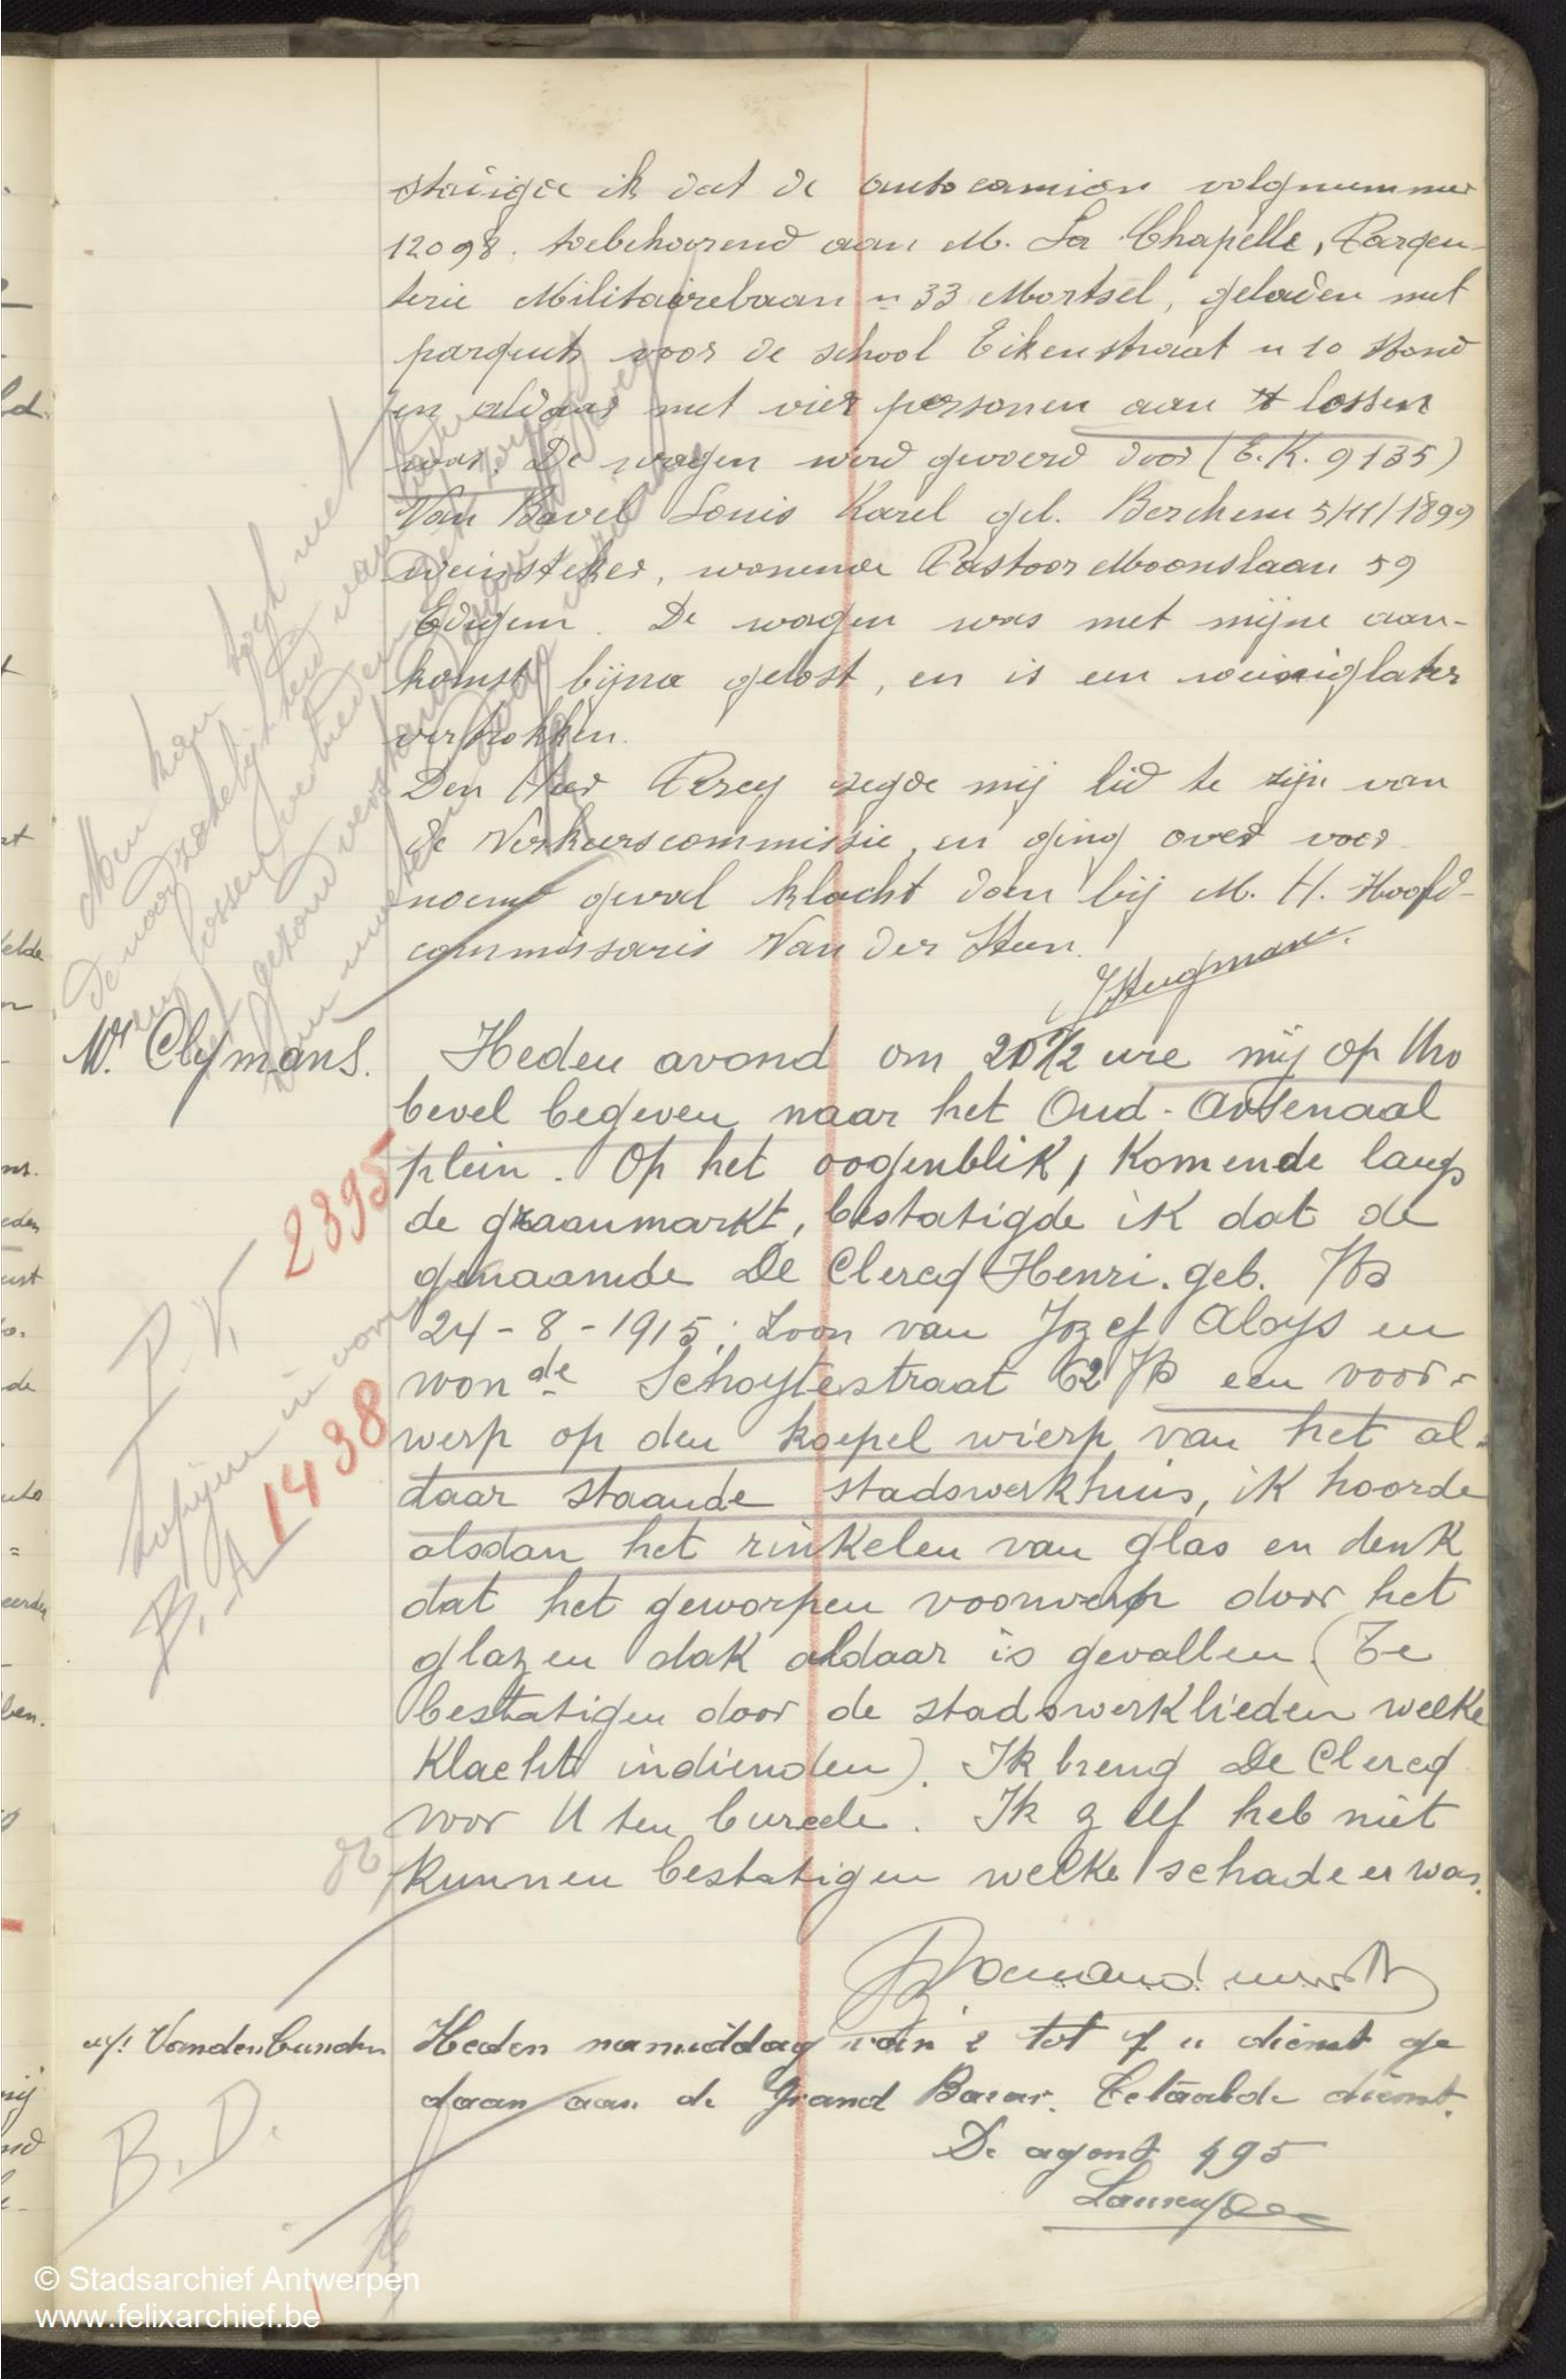 ik dat de autocamion volgnummer
12098. toebehoorend aan M. La Chapelle, Parqen-
terie Militairebaan n 33 Mortsel, geladen met
parquets voor de school Eikenstraat n 10 stond
en aldaar met vier personen aan 't lossen
was. De wagen werd gevoerd door (E.K. 9135)
Van Bavel Louis Karel geb. Berchem 5/11/1899
, wonende Pastoor Moonslaan 59
Edigem. De wagen was met mijne aan-
komst bijna gelost, en is een weinig later
vertrokken.
Den Heer zegde mij lid te zijn van
de Verkeerscommissie, en ging over voor
noemd geval klacht doen bij M. H. Hoofd-
commissaris Van der Steen.
Men kan toch niet
Wr Clymans.
Heden avond om 20 1/2 ure mij op Uw
bevel begeven naar het Oud-Arsenaal
plein. Op het oogenblik, komende langs
de graanmarkt, bestatigde ik dat de
genaamde De Clercq Henri. geb. A
24-8-1915; zoon van Jozef Aloys en
wonde Schoytestraat 62 A een voor-
werp op den koepel wierp van het al-
daar staande stadswerkhuis, ik hoorde
alsdan het rinkelen van glas en denk
dat het geworpen voorwerp door het
glazen dak aldaar is gevallen (Te
bestatigen door de stadswerklieden welke
Klacht indienden). Ik breng De Clercq
voor U ten bureele. Ik zelf heb niet
kunnen bestatigen welke schade er was.
P.V. 2395
1438
Heden namiddag van 2 tot 7 u dienst ge
daan aan de Grand Bazar. Betaalde dienst.
B.D.
De agent 495
© Stadsarchief Antwerpen
www.felixarchief.be